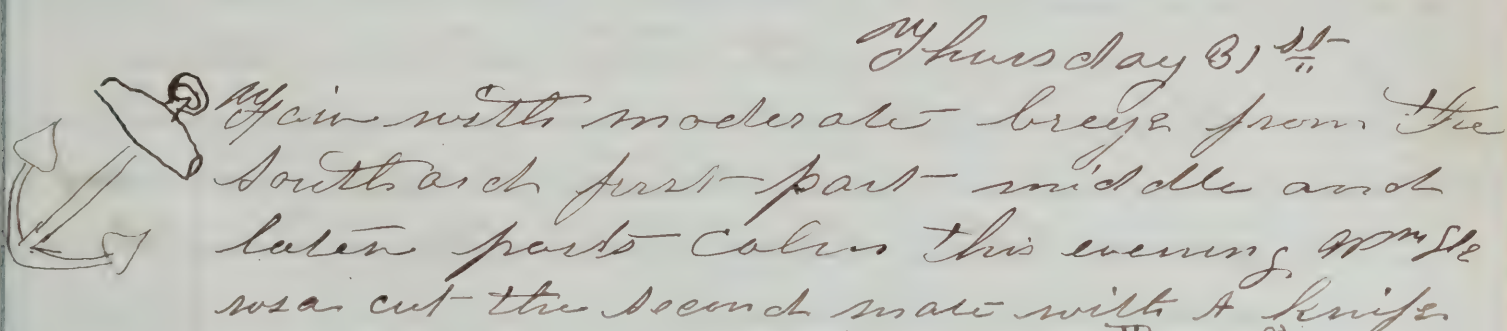 Thursday 31st
Fair with moderate breze from the
Southard first part middle and
laten parts calm this evening
cut the second mate with A knife